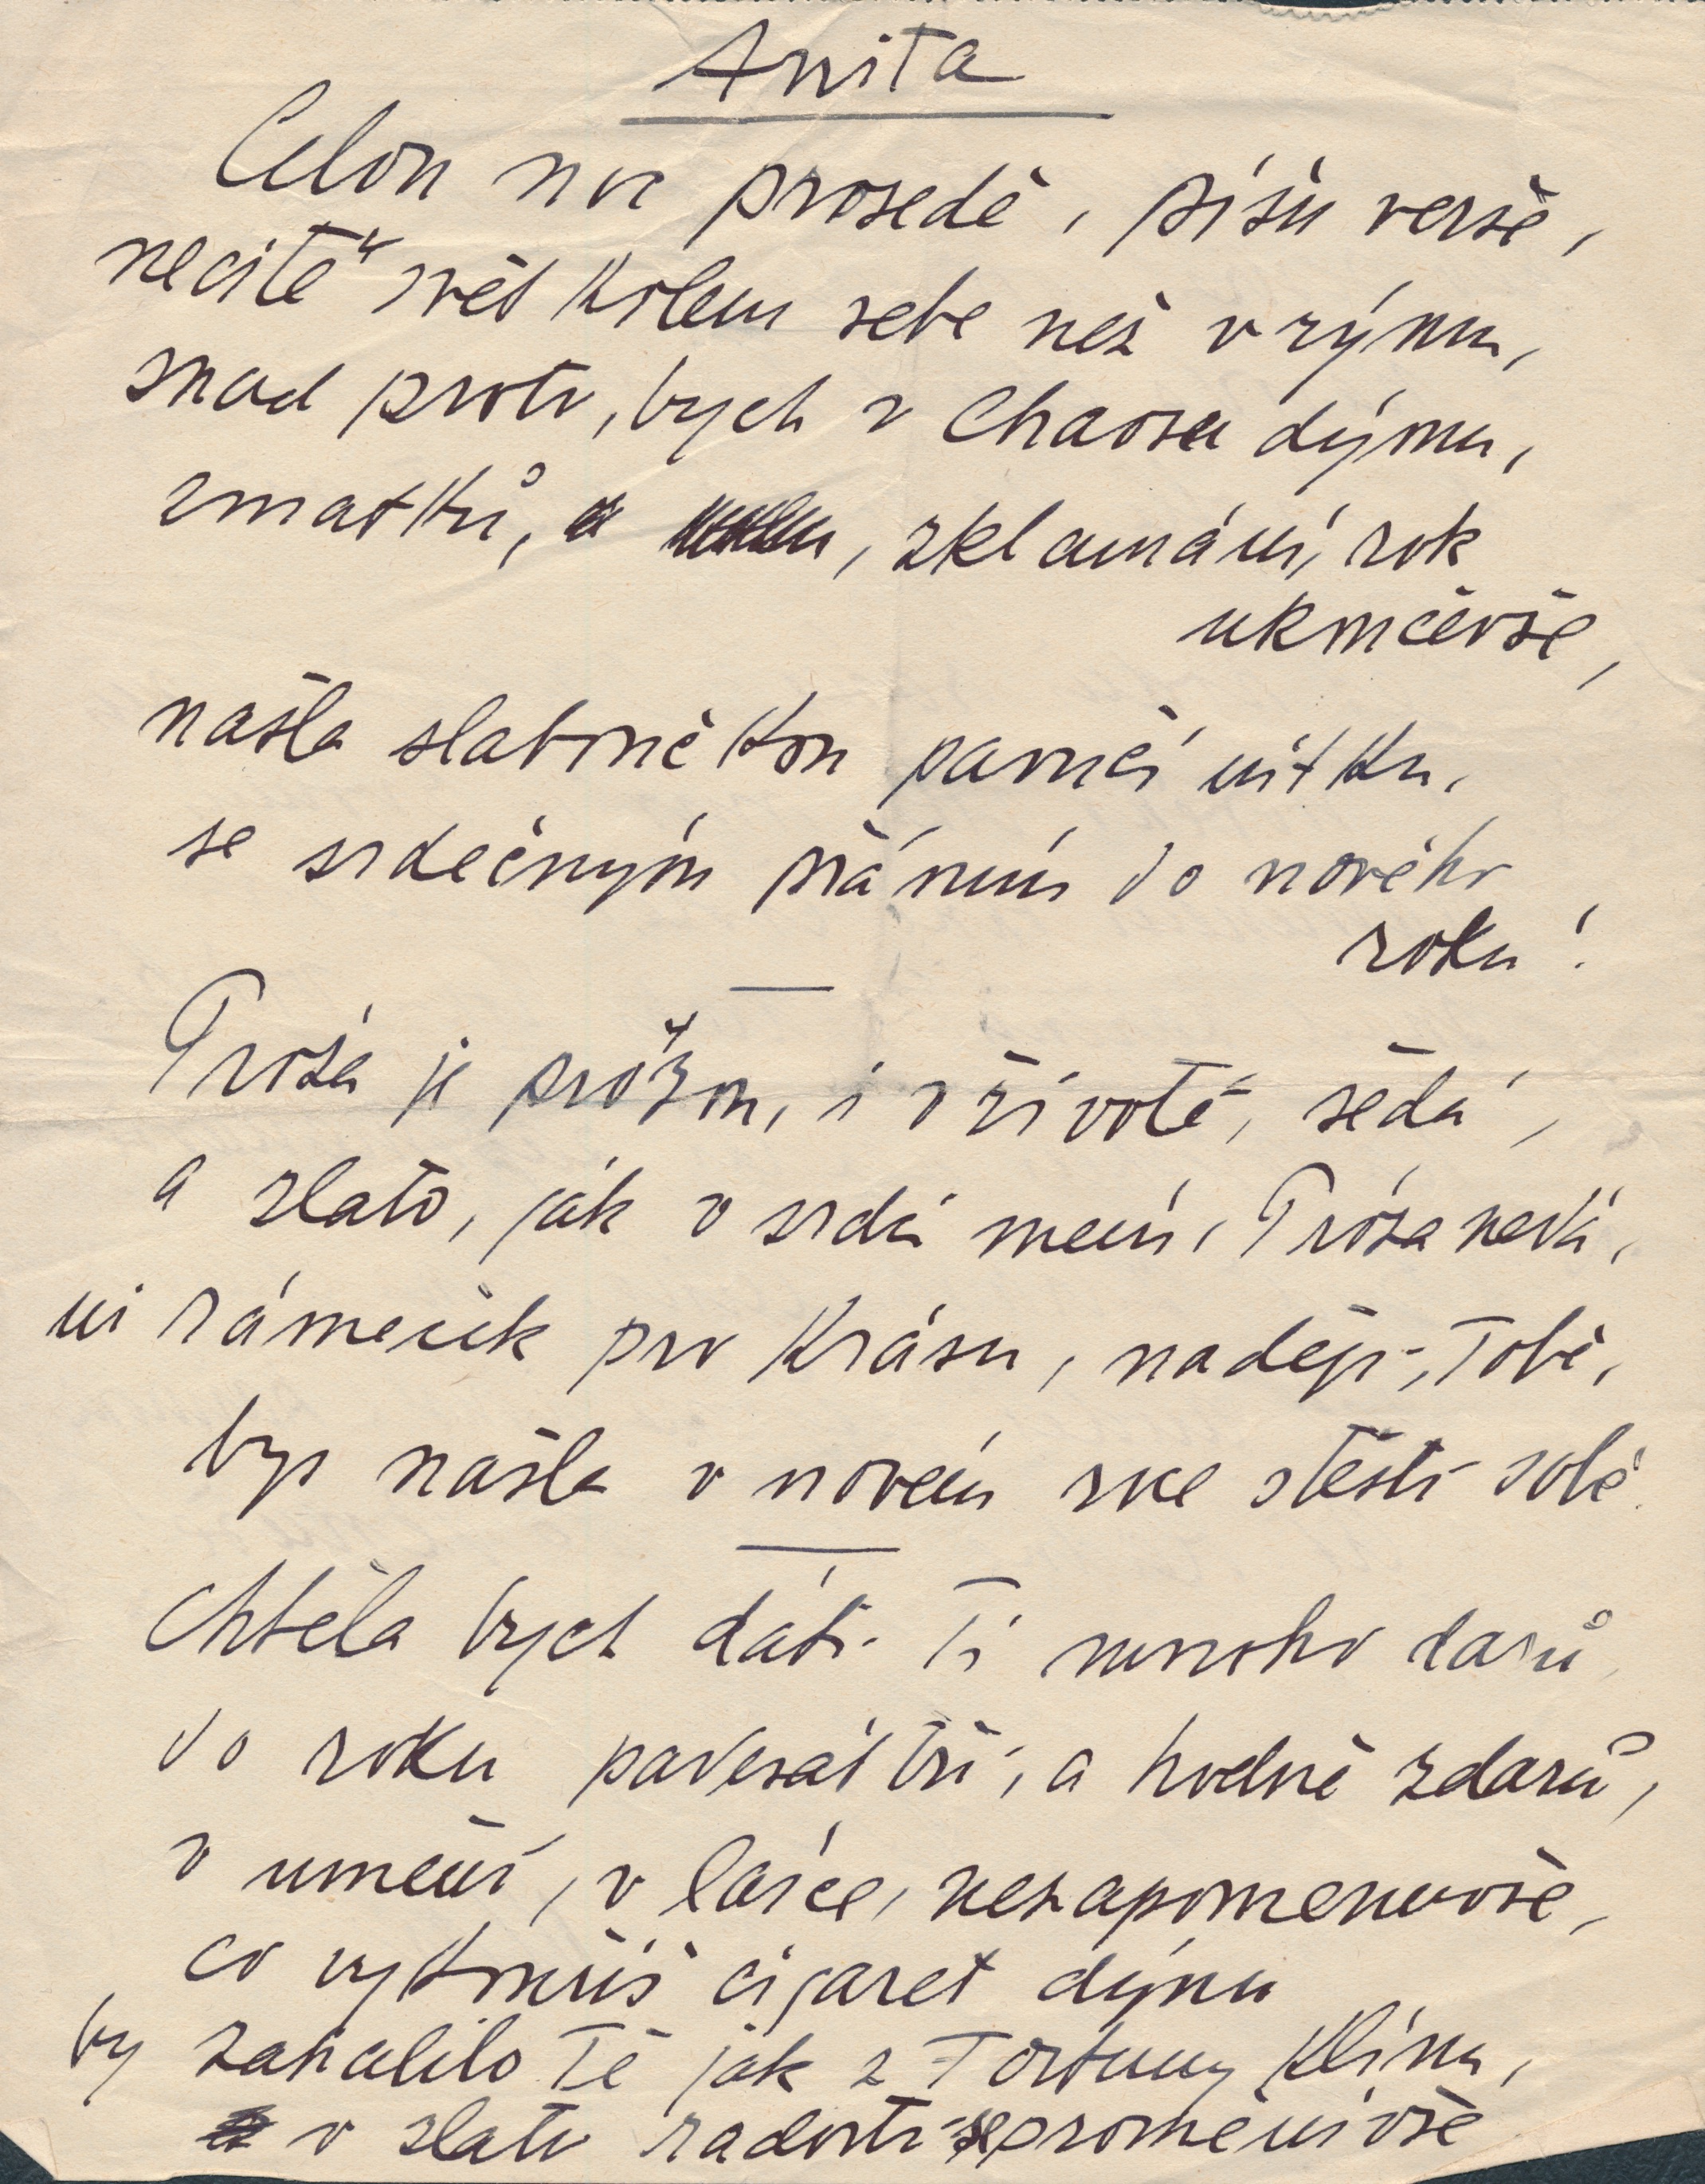 Anita
Celou noc prosedě, píšu verše,
necitě svět kolem sebe než v rýmu,
snad proto, bych v Chaosu dýmu,
zmatků, zklamání, rok
ukončevše,
našla slabou pavučí nitku,
se srdečným přáním do nového
roku!
Próza je prózou, i v životě, šedá,
a zlato, jak v srdci mém, Próza nedá,
ni rámeček pro Krásu, naději, Tobě,
bys našla v novém roce štěstí sobě.
Chtěla bych dáti Ti mnoho darů
do roku padesát tři, a hodně zdarů,
v umění, v lásce, nezapomenuvše,
co vykouříš cigaret dýmu
by zahalilo Tě jak z Fortuny klínu,
v zlato radosti se proměnivše